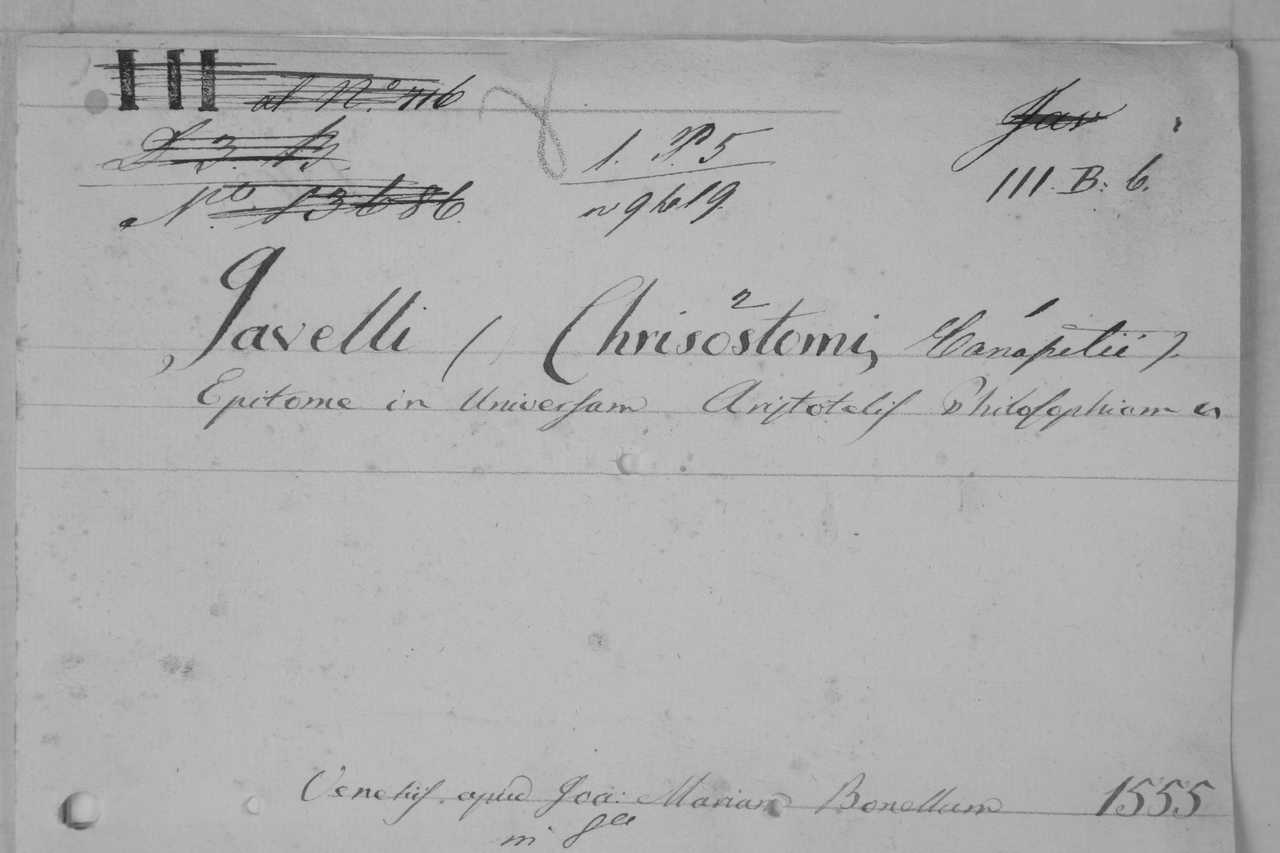 III al N.º 716
L 3. B
N.º 13686.
1. P. 5
n 9619.
Jav
III. B: 6.
Javelli ( Chrisostomi, Canapitii )
Epitome in Universam Aristotelis Philosophiam
Venetiis, apud Joa: Mariam Bonellum 1555
in 8